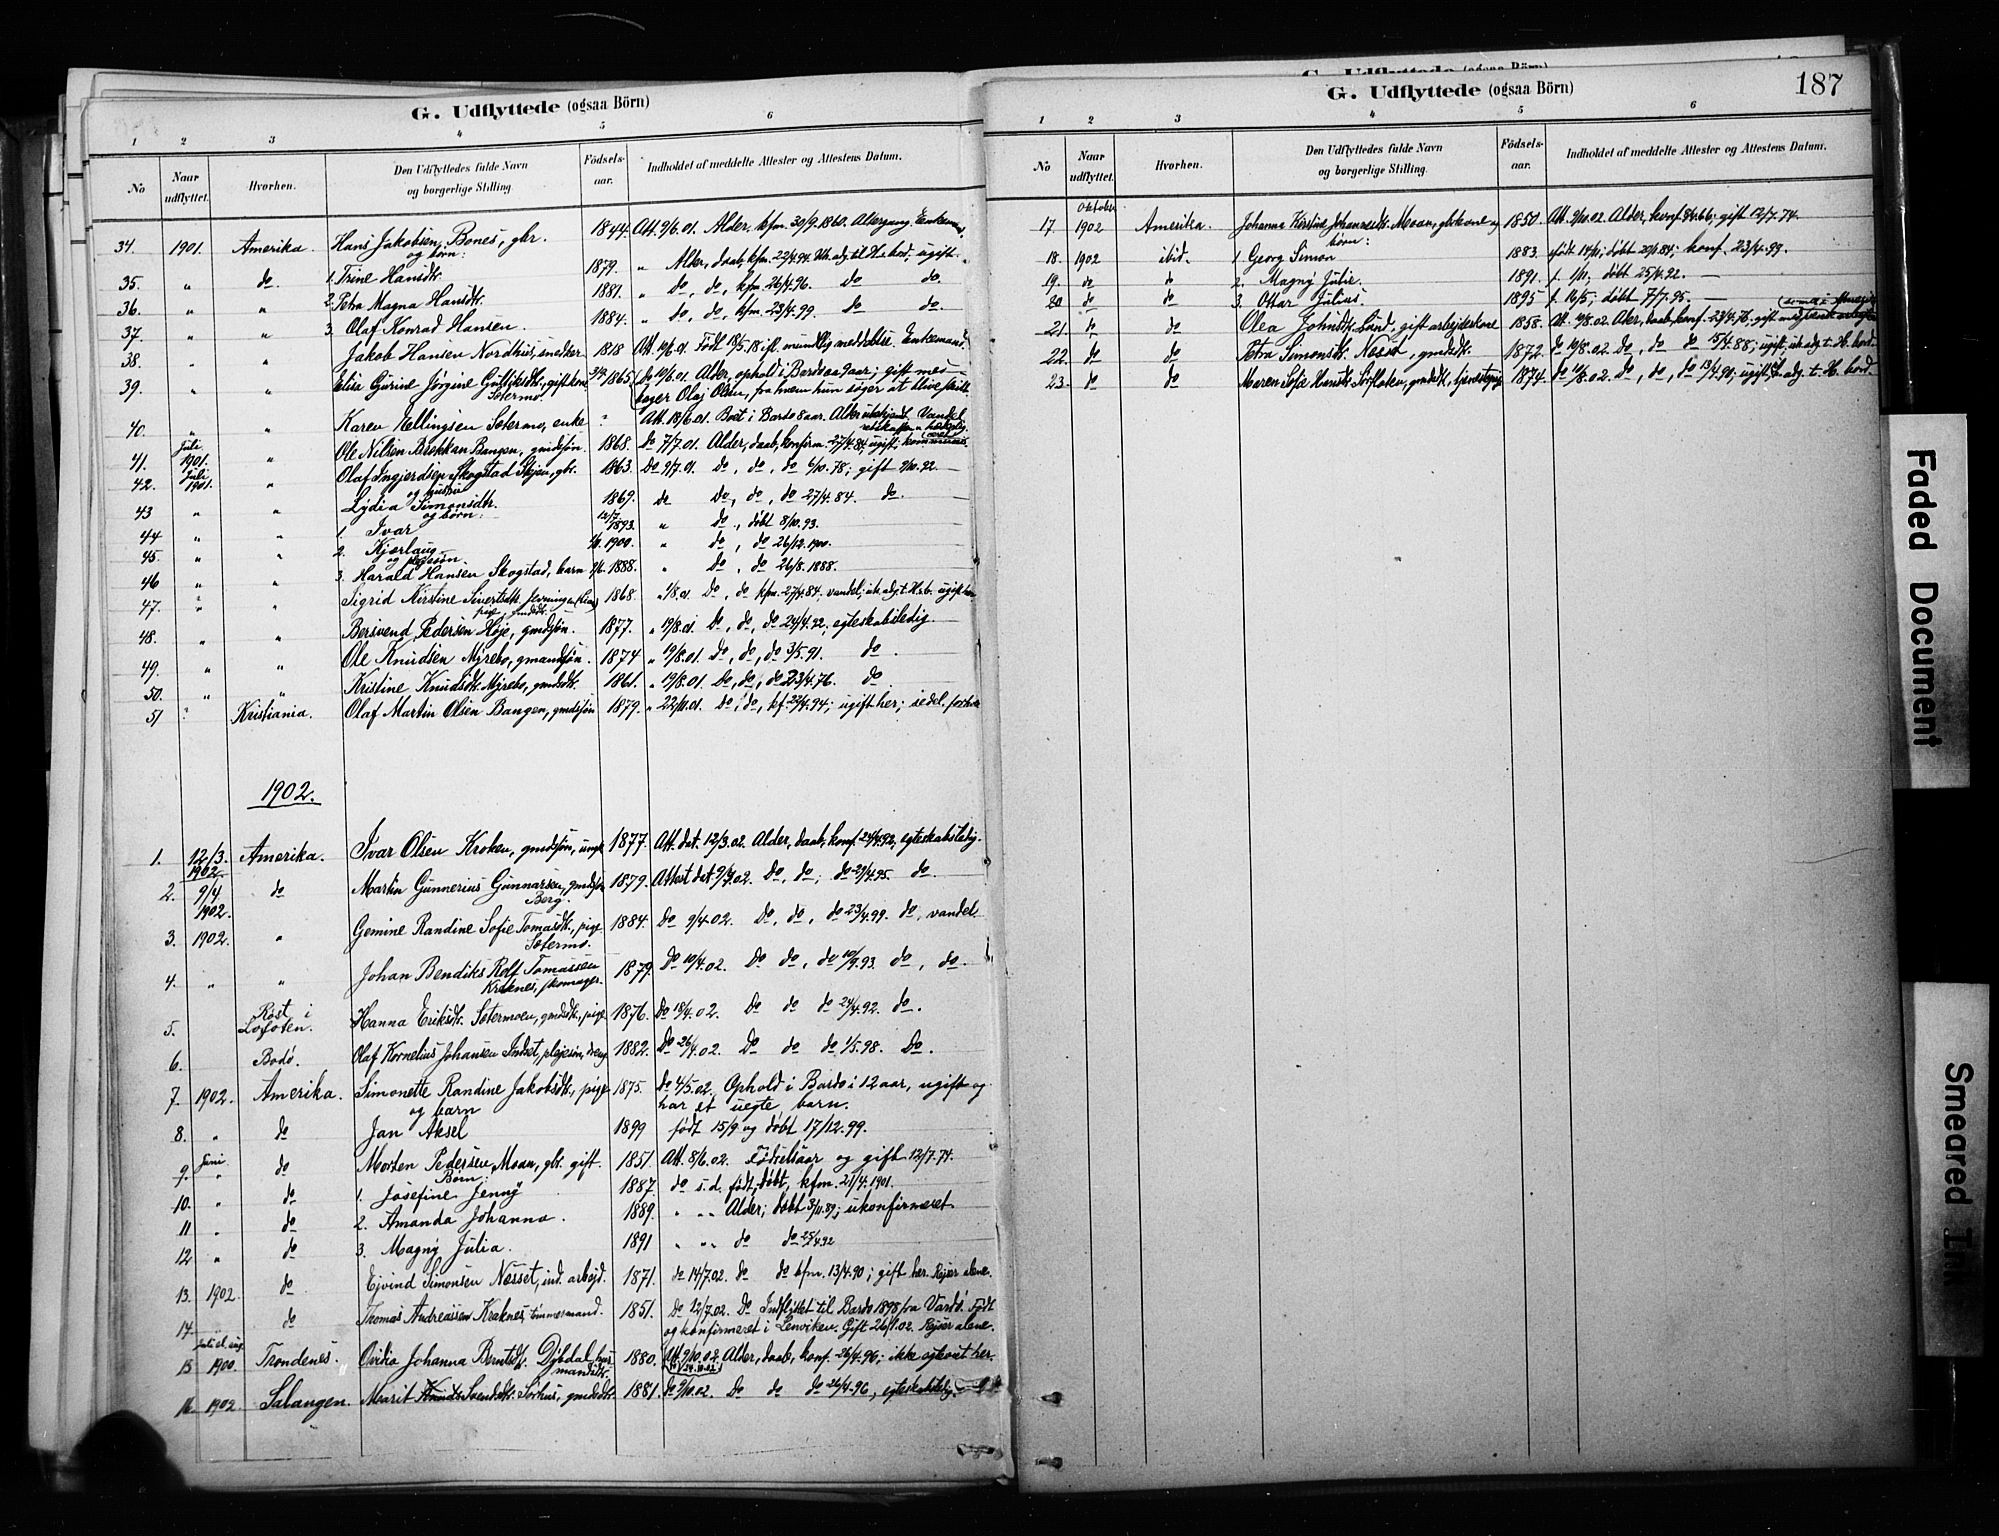 G. Udflyttede (ogsaa Börn)
1 2 3 4 5 6
No Naar udflyttet. Hvorhen. Den Udflyttedes fulde Navn og borgerlige Stilling. Födsels-aar. Indholdet af meddelte Attester og Attestens Datum.
34. 1901. Amerika. Hans Jakobsen Bones, gbr. 1844. Att. 9/6.01. Alder, kfm. 30/9.1860.
og börn:
35. " do 1. Trine Hansdtr. 1879. " Alder, daab, kfm. 22/4.94. ugift.
36. " " 2. Petra Magna Hansdtr. 1881. " do, do, kfm. 26/4.96. do do.
37. " " 3. Olaf Konrad Hansen. 1884. " do, do, kfm. 23/4.99. do do.
38. " Jakob Hansen Nordhus, snedker 1818 Att. 10/6.01. Født 18/5.18 ifl. mundtlig meddelelse. Enkemand.
39. " " Elise Gurine Jörgine gift kone 1865. Do 10/6.01. Alder, ophold i Bardo aar; gift med
Setermo. Olaj Olsen, fra hvem hun søger at blive skilt.
40. " " Karen Hellingsen Setermo, enke ? Att. 18/6.01. Boet i Bardo 8 aar. Alder ubekjendt. Vandel
41. Juli 1901. " Ole Nilsen Brekkan Bangen, gmdssøn. 1868. Do 7/7.01. Alder, daab, konfirm. 27/4.84; ugift;
42. Juli 1901. " Olaf Ingjerdsen Skogstad gbr. 1863. Do 9/7.01. Do, do, do 6/10.78; gift 9/10.92.
og hustru
43 " " Lydia Simonsdtr. 1869. do Do, do, do 27/4.84. do.
og börn:
44 " " 1. Ivar 12/7 1893. " do., døbt 8/10.93.
45. " " 2. Kjerlaug 1900. " do, do 26/12.1900.
og plejesøn.
46 " " 3. Harald Hansen Skogstad, barn 1888. " do, do 26/8.1888.
47. " " Sigrid Kirstine Sivertsdtr. 1868. " 1/8.01 Do, do kfm. 27/4.84; vandel;
pige, gmdsdtr.
48. " " Bersvend Pedersen Høje, gmdssøn. 1877. " 19/8.01 Do, do, do 24/4.92, egteskabsledig
49. " " Ole Knudsen Myrebo, gmandssøn. 1874 " 19/8.01. Do, do, do 3/5.91. do.
50. " " Kristine Knudsdtr. Myrebo, gmdsdtr. 1861. " 19/8.01. Do, do, do 23/4.76. do
51 ? Kristiania. Olaf Martin Olsen Bangen, gmdssøn 1879. " 22/11.01. Do, do, kf. 22/4.94; ugift her;
1902.
1. 12/3. 1902. Amerika. Ivar Olsen Kroken, gmdssøn, ungk 1877. Att. dat. 12/3.02. Alder, daab, konf. 24/4.92, egteskabsledig.
2. 9/4 1902. do Martin Gunnerius Gunnarsen, gmdssøn 1879. Attest dat. 9/4.02. Do, do; do 21/4.95. do.
Berg.
3. 1902. " Gemine Randine Sofie Tomasdtr., pige 1884. Do 9/4.02. Do, do, do 23/4.99. do, vandel
Setermo.
4. " " Johan Bendiks Rolf Tomassen 1879. Do 10/4.02. Do do, do 10/9.93. do, do.
Kreknes, skomager.
5. Røst i Lofoten. Hanna Eriksdtr. Setermoen, gmdsdtr., pige 1876. Do 18/4.02. Do do do 24/4.92. do.
6. Bodø. Olaf Kornelius Johansen Indset, plejesøn, dreng 1882. Do 26/4.02. Do do do 1/5.98. Do.
7. 1902. Amerika. Simonette Randine Jakobsdtr., pige 1875. do 4/5.02. Ophold i Bardo i 12 aar, ugift og
og barn har et uegte barn.
8. " do Jan Aksel 1899 født 15/9 og døbt 17/12.99.
9. Juni " do Morten Pedersen Moan, gbr. gift. 1851. Att. 8/6.02. Fødselsaar og gift 12/7.74.
Børn:
10. " do 1. Josefine Jenny 1887. do s.d. født, døbt, kfm. 21/4.1901.
11 " do 2. Amanda Johanna. 1889. " " Alder; døbt 3/11.89; ukonfirmeret
12 " do 3. Magny Julia. 1891 " " do do 25/4.92
13. 1902. do Ejvind Simonsen Nesset, ind. arbejd. 1871. do 14/7.02. do do kfm. 13/4.90; gift her. Rejser alene.
14. do Thomas Andreassen Kreknes, tømmermand. 1851. Do 12/7.02. Do Indflyttet til Bardo 1898 fra Vardø. Født
og konfirmeret i Lenviken. Gift 26/1.02. Rejser alene.
15 Juli el. aug. 1900. Trondenes. Ovidia Johanna Berntsdtr. Dybdal, hus- 1880. Att. 9/10.02. Alder, daab, konf. 26/4.96; ikke egteviet her.
mandsdtr.
16. 1902. Salangen. Marit Svendsdtr. Sørhus, gmdsdtr. 1881. do 9/10.02. Do do do 26/4.96, egteskabsledig
G. Udflyttede (ogsaa Börn)
187
1 2 3 4 5 6
No Naar udflyttet. Hvorhen. Den Udflyttedes fulde Navn og borgerlige Stilling. Födsels-aar. Indholdet af meddelte Attester og Attestens Datum.
17. Oktober 1902 Amerika. Johanna Kirstine Johannesdtr. Moan, gbrkone og 1850. Att. 9/10.02. Alder, konf. gift 12/7.74.
børn:
18. 1902 ibid. 1. Georg Simon 1883. født 14/11; døbt 20/1.84; konf. 23/4.99.
19. do do 2. Magny Julie 1891. f. 1/11; døbt 25/4.92.
20 do do 3. Ottar Julius. 1895 f. 16/5; døbt 7/7.95.
21. do do Olea Johnsdtr. Sand, gift arbejderkone 1858. Att. 10/8.02. Alder, daab, konf. 23/4.76; gift
22. do do Petra Simonsdtr. Nesset, gmdsdtr. 1872. do 10/8.02. Do, do do 15/4.88; ugift,
23. do do Maren Sofie Hansdtr. Sørfloten, gmdsdtr, tjenestepige 1874. do 11/8.02. Do, do, do 13/4.90; ugift,
Faded Document
Smeared Ink